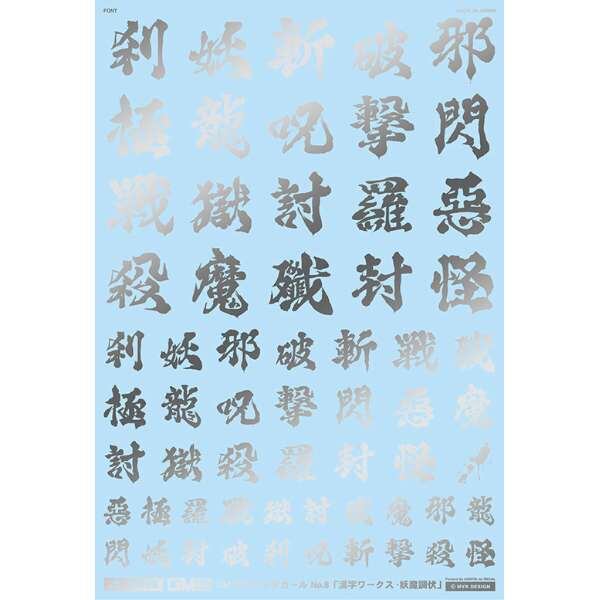 FONT
刹妖斬破邪
極龍呪撃閃
戦獄討羅惡
殺魔殲封怪
刹妖邪破斬戦殲
極龍呪撃閃惡魔
討獄殺羅封怪
惡極羅殲獄討戦魔邪龍
閃妖斬破刹呪撃封殺怪
デカール No.8「漢字ワークス・妖魔調伏」 © MYK DESIGN